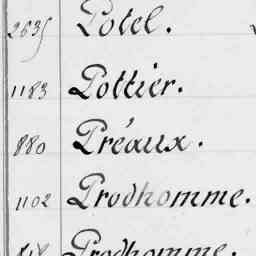 2635 Potel.
1183 Pottier.
880 Préaux.
1102 Prodhomme.
Prodhomme.